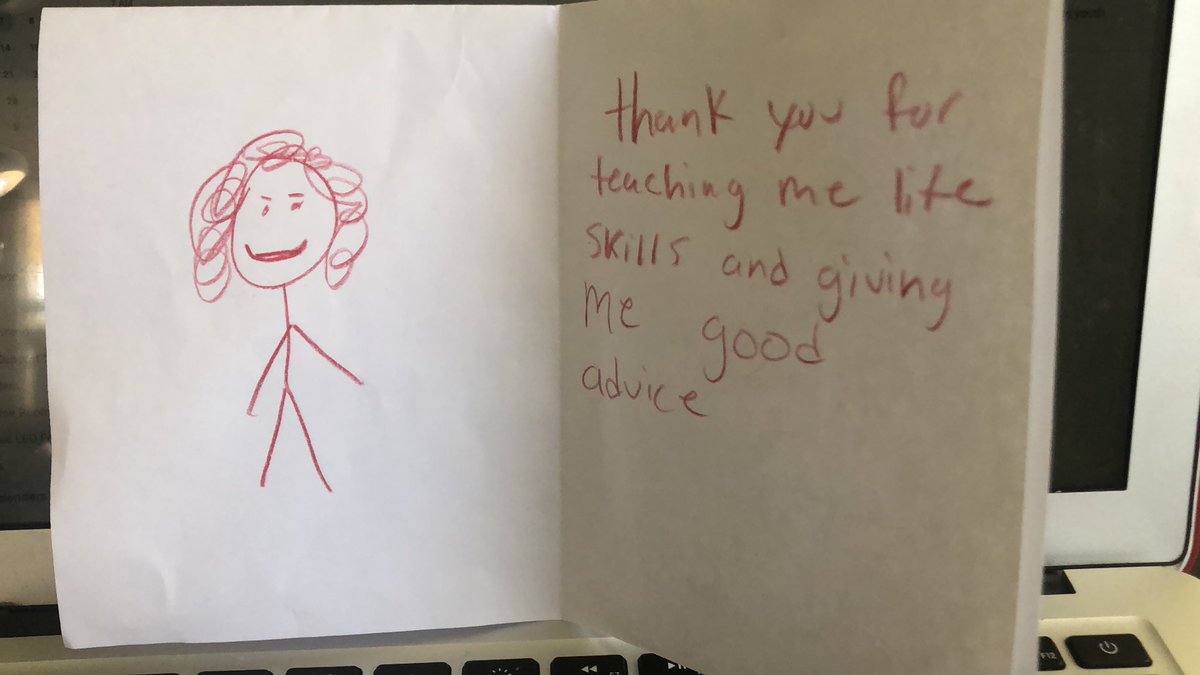 thank you for
teaching me life
skills and giving
me good
advice
F12